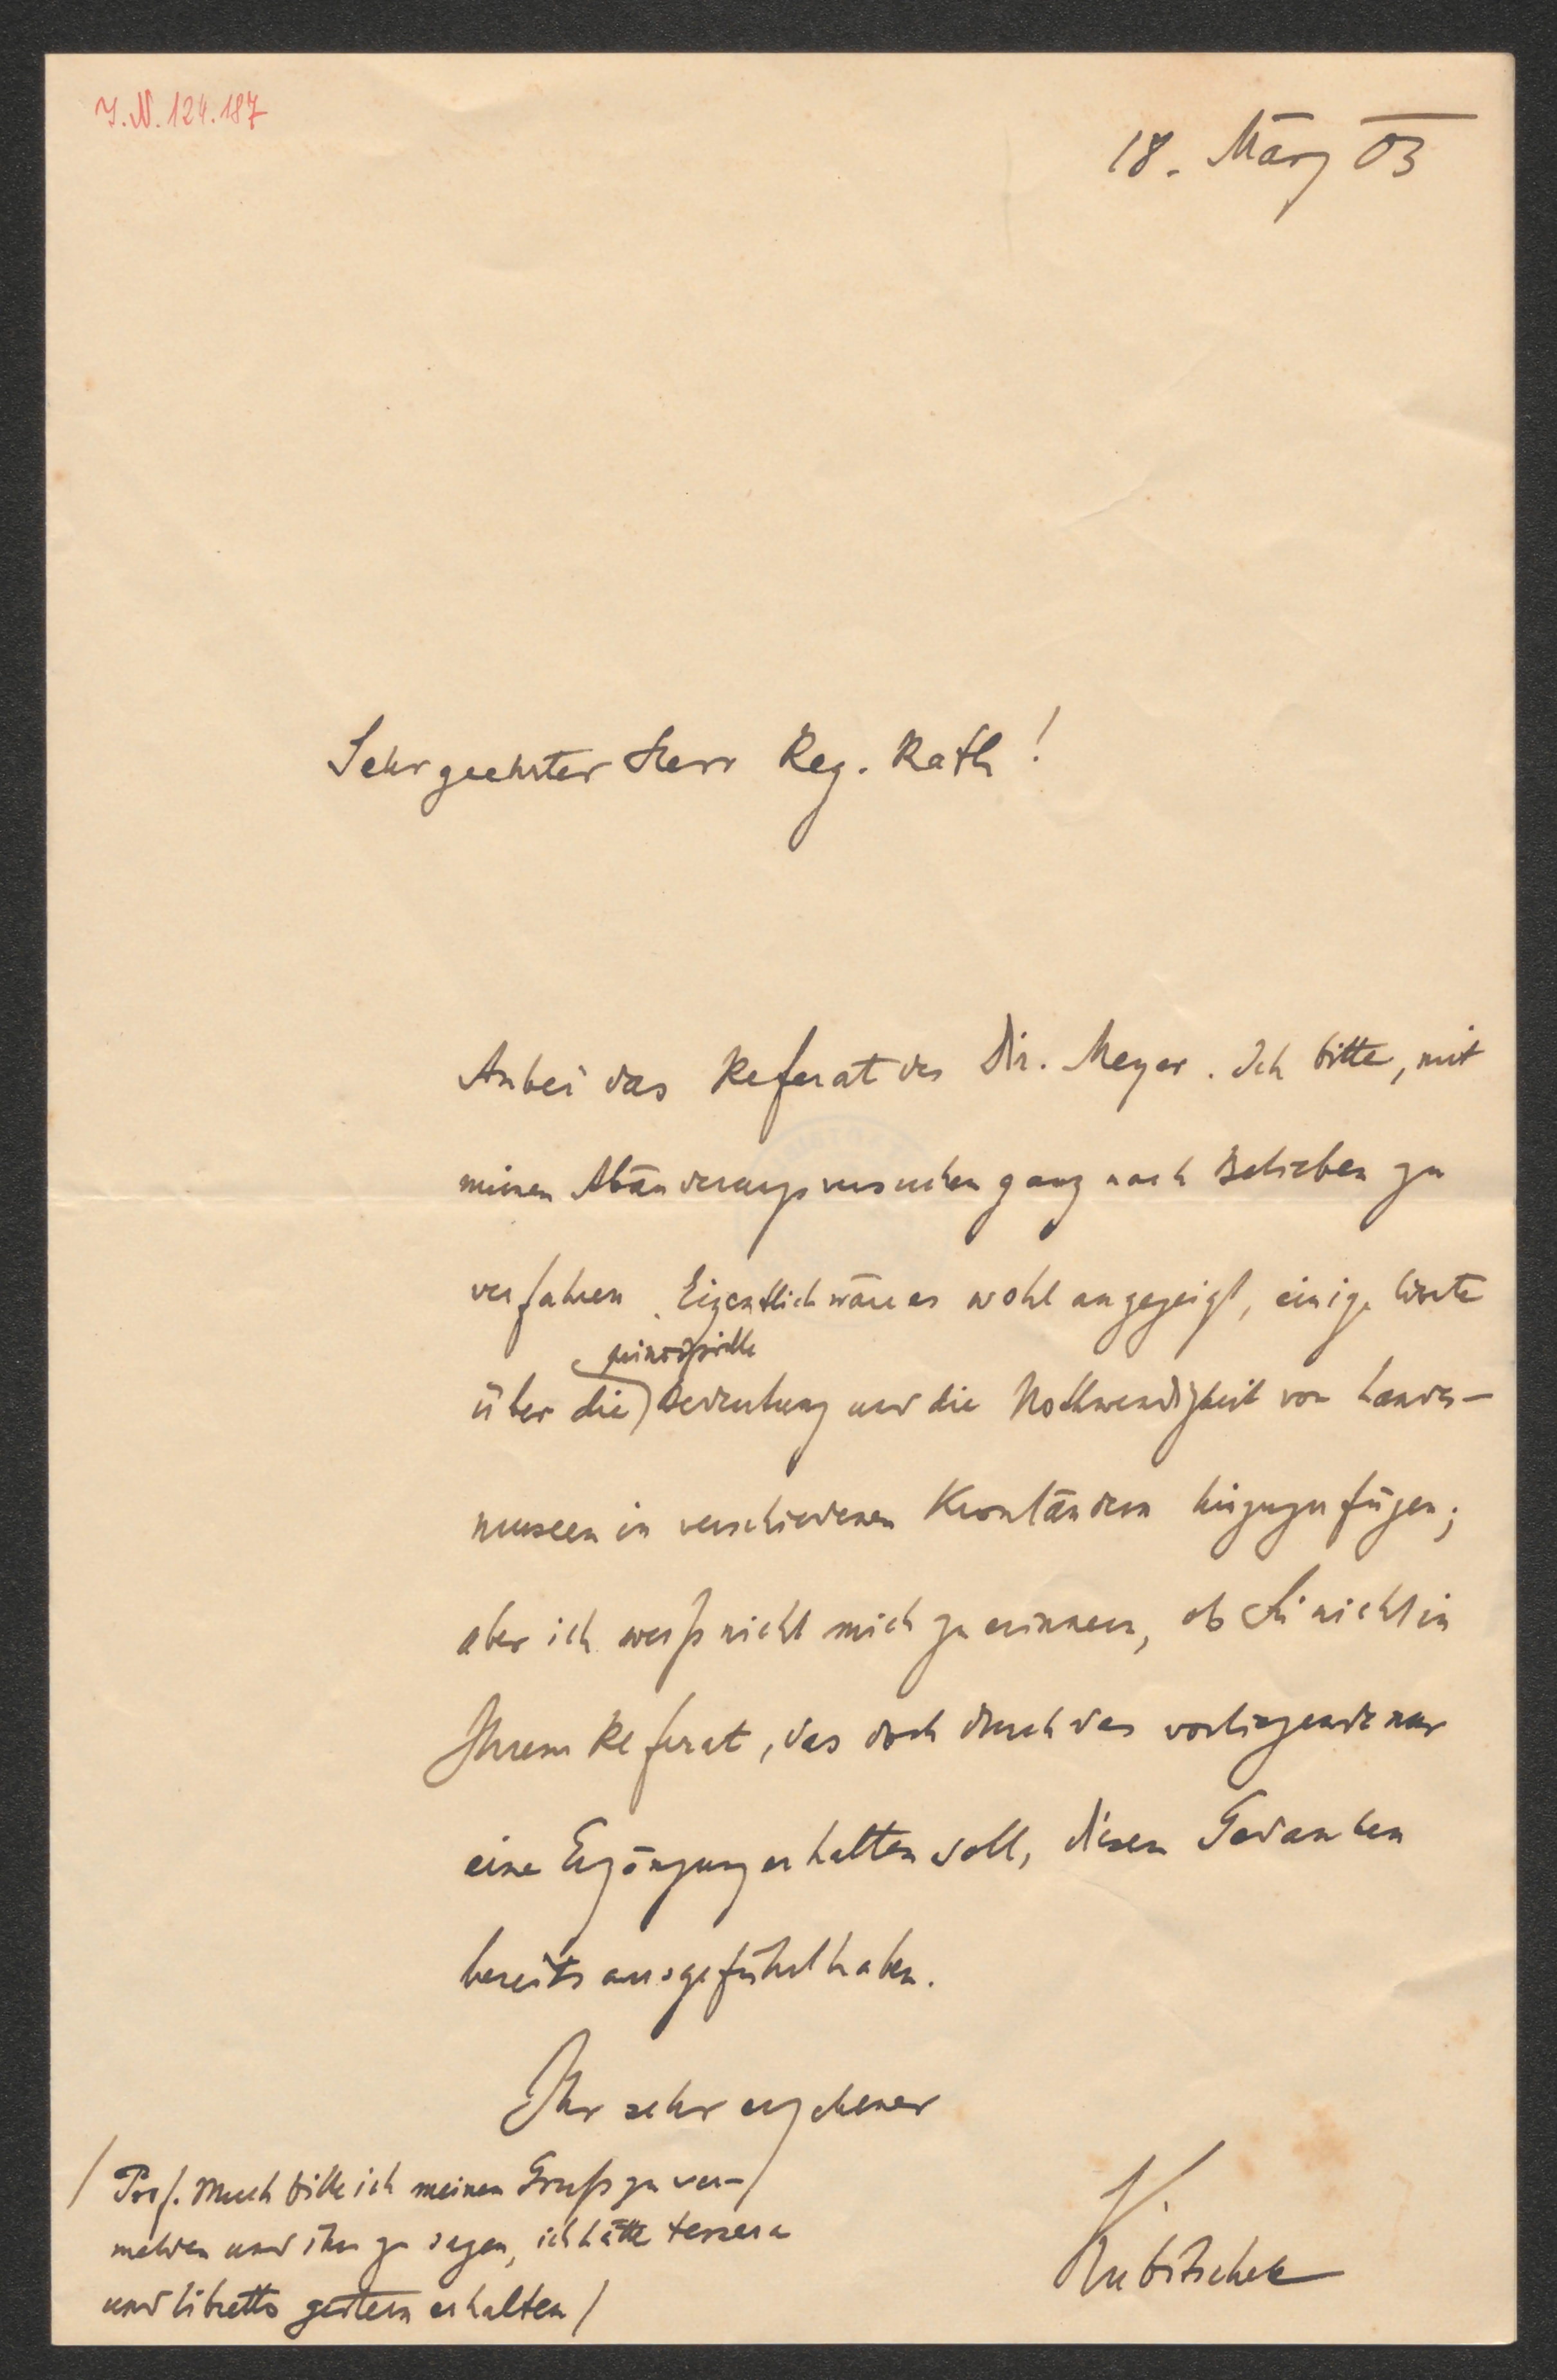 I.N. 124.187
18. März 03
Sehr geehrter Herr Reg. Rath!
Anbei das Referat des Dir. Meyer. Ich bitte, mit
meinen Abänderungsversuchen ganz nach Belieben zu
verfahren. Eigentlich wäre es wohl angezeigt, einige Worte
principielle
über die Bedeutung und die Nothwendigkeit von Landes-
museen in verschiedenen Kronländern hinzuzufügen;
aber ich weiß nicht mich zu erinnern, ob Sie nicht in
Ihrem Referat, das doch durch das vorliegende nur
eine Ergänzung erhalten soll, diesen Gedanken
bereits ausgeführt haben.
Ihr sehr ergebener
Kubitschek
/ Prof. Much bitte ich meinen Gruß zu ver-
melden und ihm zu sagen, ich hätte tessera
und libretto gestern erhalten /